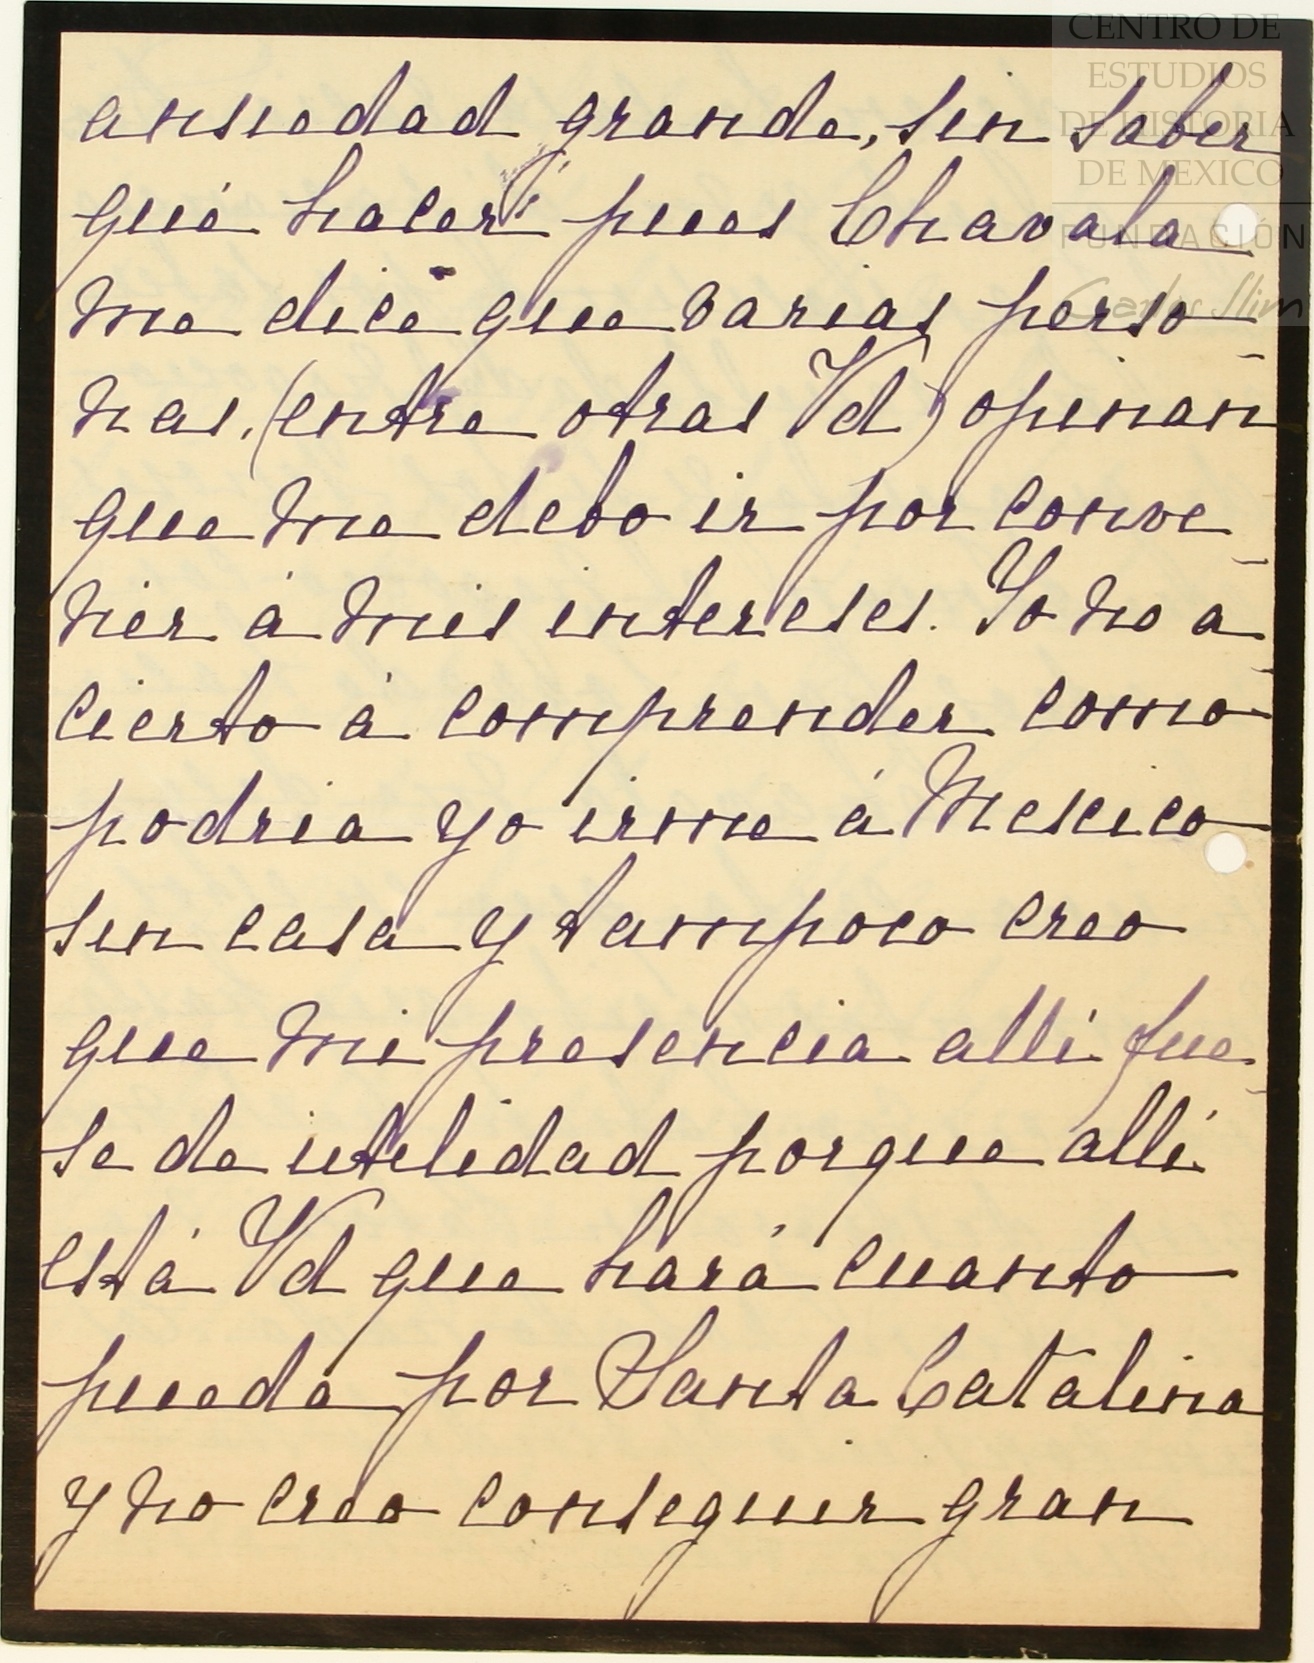 CENTRO DE
ESTUDIOS
DE HISTORIA
DE MEXICO
FUNDACIÓN
Carlos Slim
ansiedad grande, sin saber
qué hacer, pues Chavala
me dice que varias perso-
nas, (entre otras Vd) opinan
que me debo ir por conve-
nir á mis intereses. Yo no a-
cierto á comprender como
podria yo irme á Mexico
sin casa y tampoco creo
que mi presencia allí fue-
se de utilidad porque allí
está Vd que hará cuanto
pueda por Santa Catalina
y no creo conseguir gran